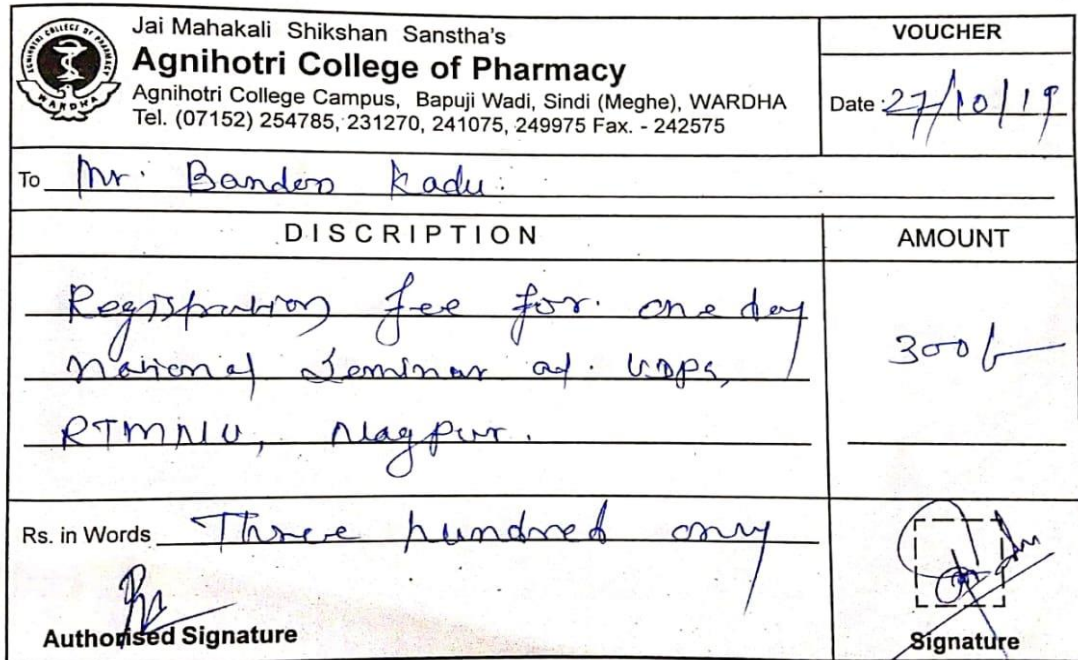 AGNIHOTRI COLLEGE OF PHARMACY
WARDHA
Jai Mahakali Shikshan Sanstha's
Agnihotri College of Pharmacy
Agnihotri College Campus, Bapuji Wadi, Sindi (Meghe), WARDHA
Tel. (07152) 254785, 231270, 241075, 249975 Fax. - 242575
VOUCHER
Date: 27/10/19
To Mr. Kadu.
DISCRIPTION
AMOUNT
Registration fee for one day
National Seminar at. UDPS,
RTMNU, Nagpur.
300/-
Rs. in Words Three hundred only
Authorised Signature
Signature